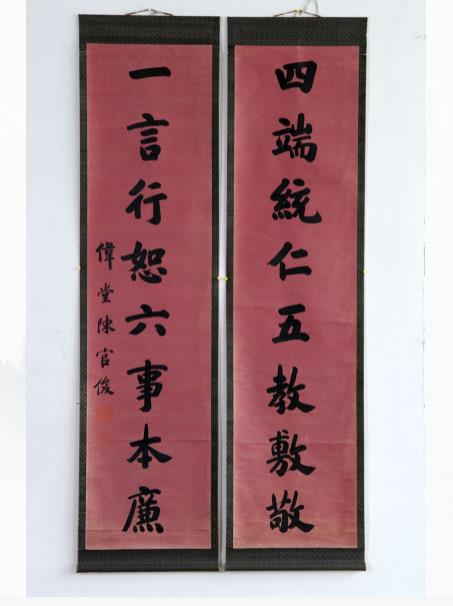 四端統仁五教敷敬
一言行恕六事本廉
偉堂陳官俊